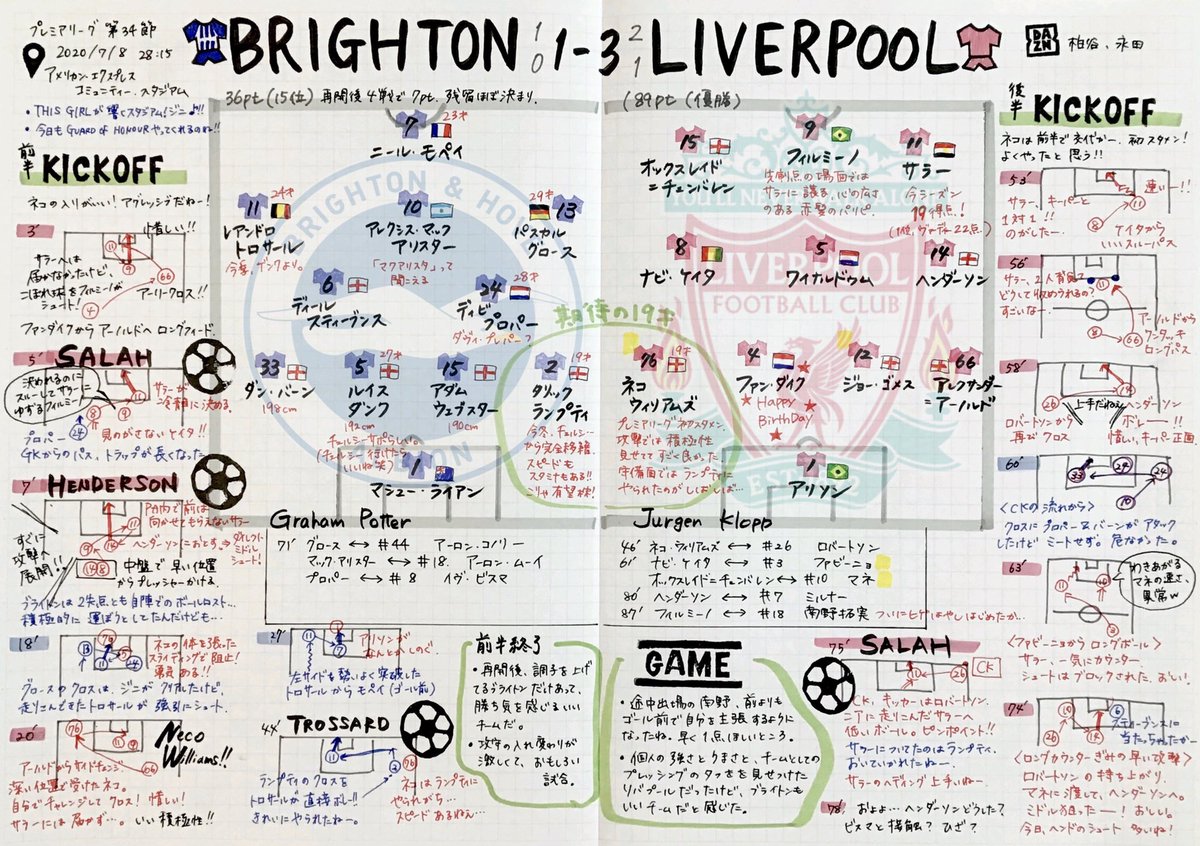 プレミアリーグ 第34節
2020/7/8 28:15
アメリカン・エクスプレス
コミュニティー・スタジアム
• THIS GIRLが響くスタジアム!ジニ♪!!
• 今日もGUARD OF HONOURやってくれるのね!!
BRIGHTON 1-3 LIVERPOOL
1 0
2 1
DAZN
柏谷、永田
36pt(15位) 再開後4戦で7pt. 残留ほぼ決まり.
(89pt(優勝)
前半 KICKOFF
ネコの入りがいい! アグレッシブだねー!
3'
惜しい!!
サラーへは
届かなかったけど、
こぼれ球をフィルミーノが
シュート!
アーリークロス!!
11
9
66
4
ファンダイクからアーノルドへ ロングフィード.
5' SALAH
決められるのに
スルーしてサラーに
ゆずるフィルミーノ
サラーが
冷静に決める.
プロパー 24 見のがさないケイタ!!
GKからのパス、トラップが長くなった.
7' HENDERSON
PA内で前は
向かせてもらえないサラー
ヘンダーソンにおとす→ダイレクト
ミドル
シュート!
すぐに
攻撃へ
展開!!
14 8 中盤で早い位置
からプレッシャーかける.
ブライトンは2失点とも自陣でのボールロスト…
積極的に運ぼうとしてたんだけども…
18'
ネコの体を張った
スライディングで阻止!
勇気ある!!
グロースのクロスは、ジニがクリアしたけど、
走りこんできたトロサールが強引にシュート.
20'
Neco
Williams!!
アーノルドからサイドチェンジ.
深い位置で受けたネコ.
自分でチャレンジしてクロス! 惜しい!
サラーには届かず…. いい積極性!!
7 23才
ニール・モペイ
11 24才
レアンドロ
トロサール
今冬、ゲンクより.
10
アレクシス・マック
アリスター
「マクアリスタ」って
聞こえる
29才 13
パスカル
グロース
6
ディール
スティーブンス
24 28才
デイビ
プロパー
ダヴィ・プレパー?
33
ダン・バーン
198cm
5 27才
ルイス
ダンク
192cm
チェルシーサポらしい。
(チェルシー行けたら
いいね笑)
15
アダム
ウェブスター
190cm
期待の19才
2 19才
タリック
ランプティ
今冬、チェルシー
から完全移籍.
スピードも
スタミナもある!!
こりゃ有望株!
1
マシュー・ライアン
BRIGHTON & HO
ON
15
オックスレイド
=チェンバレン
9
フィルミーノ
先制点の場面では
サラーに譲る、心の広さ
のある赤髪のパリピ.
11
サラー
今シーズン
19得点!
(1位、ヴァーディ22点)
8
ナビ・ケイタ
5
ワイナルドゥム
14
ヘンダーソン
76 19才
ネコ
ウィリアムズ
プレミアリーグ初スタメン.
攻撃では積極性
見せててすごく良かった.
守備面ではランプティに
やられたのがしばしば…
4
ファン・ダイク
Happy
BirthDay
12
ジョー・ゴメス
66
アレクサンダー
=アーノルド
1
アリソン
YOU'LL NEVER WALK ALONE
LIVERPOOL
FOOTBALL CLUB
Graham Potter
71' グロース ↔ #44 アーロン・コノリー
マック・アリスター ↔ #18. アーロン・ムーイ
プロパー ↔ #8 イヴ・ビスマ
Jurgen Klopp
46' ネコ・ウィリアムズ ↔ #26 ロバートソン
61' ナビ・ケイタ ↔ #3 ファビーニョ
オックスレイド=チェンバレン ↔ #10 マネ
80' ヘンダーソン ↔ #7 ミルナー
87' フィルミーノ ↔ #18 南野拓実 ついにヒゲはやしはじめたか…
27'
アリソンが
なんとかしのぐ.
左サイドを勢いよく突破した
トロサールからモペイ(ゴール前)
44' TROSSARD
ランプティのクロスを
トロサールが直接ボレー!!
きれいにやられたねー.
76はランプティに
やられがち…
スピードあるねぇ…
前半終了
• 再開後、調子を上げ
てるブライトンだけあって、
勝ち気を感じるいい
チームだ.
• 攻守の入れ変わりが
激しくて、おもしろい
試合.
GAME
• 途中出場の南野、前よりも
ゴール前で自分を主張するように
なったね. 早く1点ほしいところ.
• 個人の強さとうまさと、チームとしての
プレッシングのタフさを見せつけた
リバプールだったけど、ブライトンも
いいチームだと感じた.
75' SALAH
CK
CK、キッカーはロバートソン.
ニアに走りこんだサラーへ
低いボール. ピンポイント!!
サラーについてたのはランプティ.
おいていかれたねー.
サラーのヘディング上手いねー.
78' およよ… ヘンダーソンどうした?
ビスマと接触? ひざ?
後半 KICKOFF
ネコは前半で交代かー. 初スタメン!
よくやったと思う!!
53'
速いー!!
サラー、キーパーと
1対1!!
のがしたー.
ケイタから
いいスルーパス
56'
サラー、2人背負って
どうして収められるの?
すごいなー.
アーノルドから
ワンタッチ
ロングパス
58'
上手だねぇ
ロバートソンから
再びクロス
ヘンダーソン
ボレー!!
惜しい、キーパー正面
60'
<CKの流れから>
クロスにプロパー&バーンがアタック
したけどミートせず. 危なかった.
63'
わきあがる
マネの速さ、
異常w
<ファビーニョからロングボール>
サラー、一気にカウンター.
シュートはブロックされた. おしい!
74'
スティーブンスに
当たっちゃったかー
<ロングカウンターぎみの早い攻撃>
ロバートソンの持ち上がり.
マネに渡して、ヘンダーソンへ.
ミドル狙ったー! おしい.
今日、ヘンドのシュート多いね!